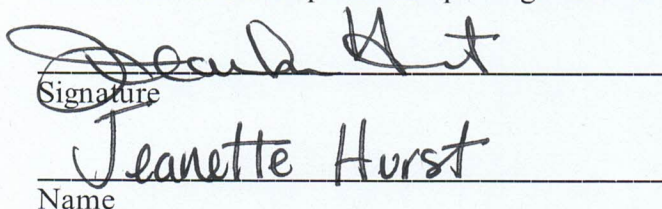 Signature
Jeanette Hurst
Name